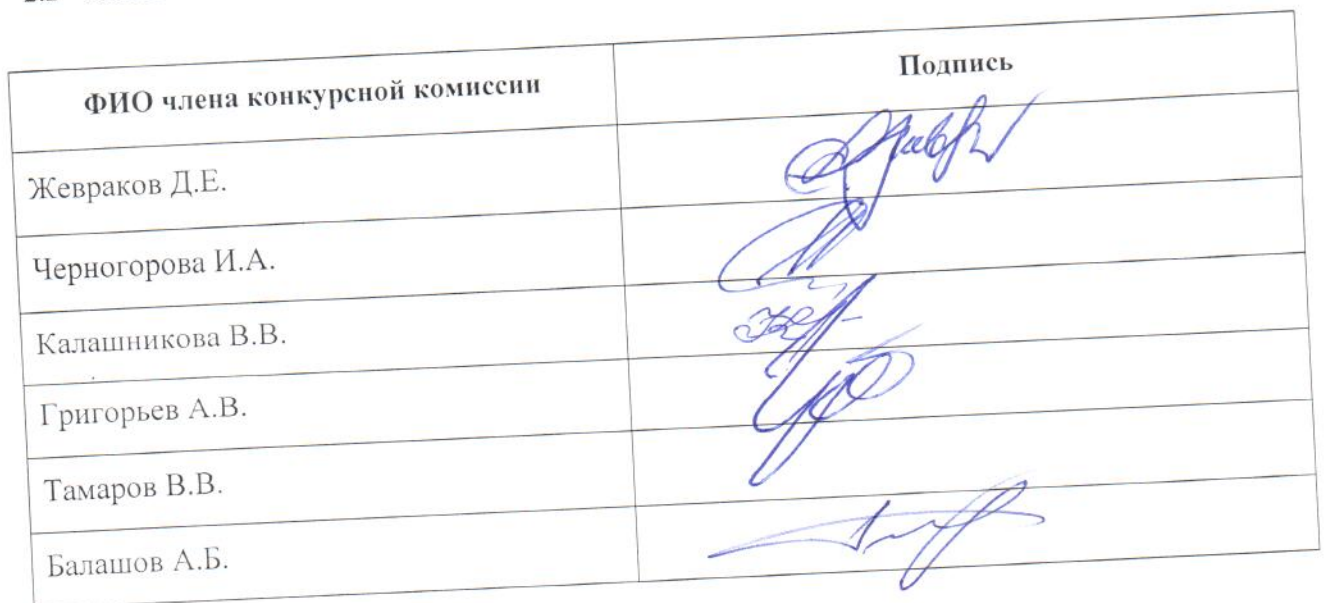 ФИО члена конкурсной комиссии Подпись
Жевраков Д.Е.
Черногорова И.А.
Калашникова В.В.
Григорьев А.В.
Тамаров В.В.
Балашов А.Б.